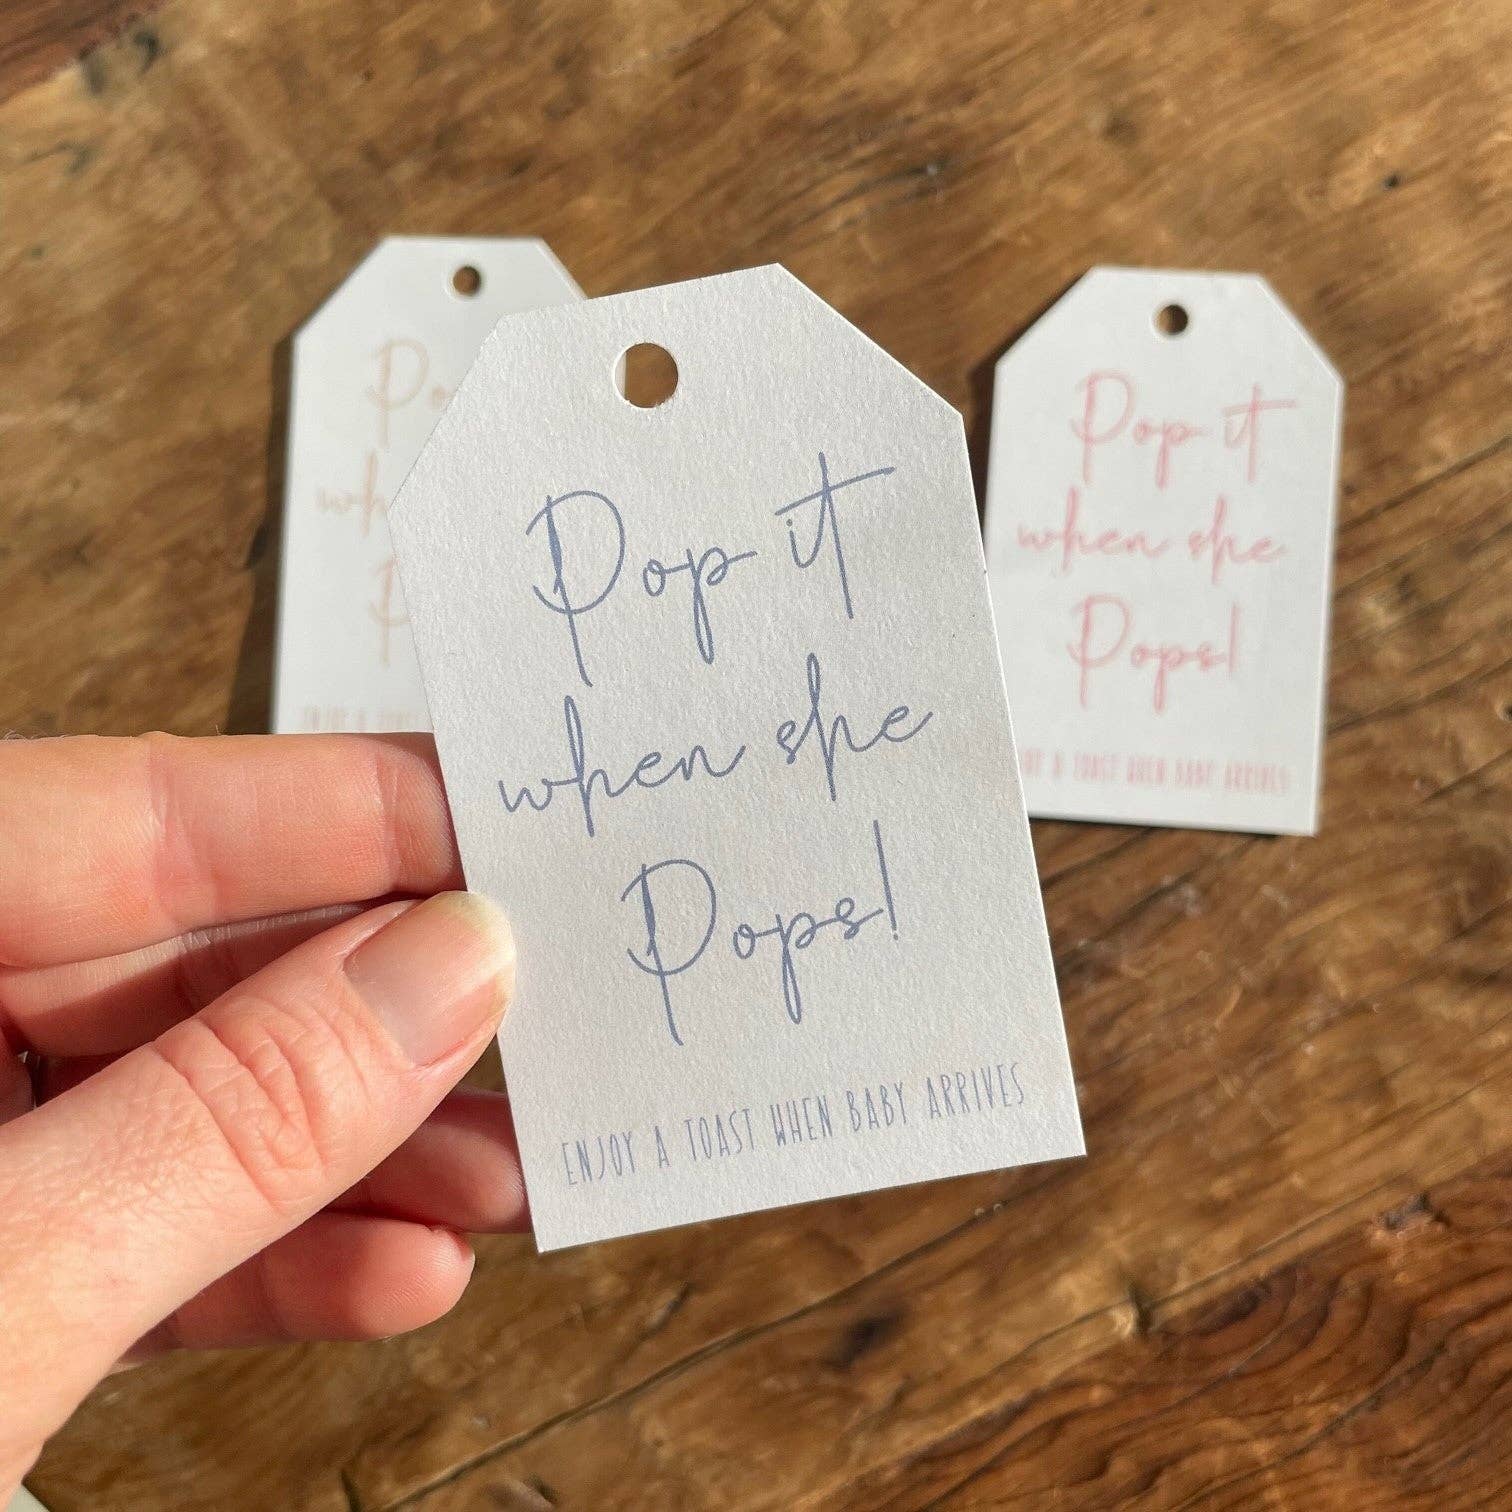 Pop it
when she
Pops!
ENJOY A TOAST WHEN BABY ARRIVES
Pop it
when she
Pops!
A TOAST WHEN BABY ARRIVES